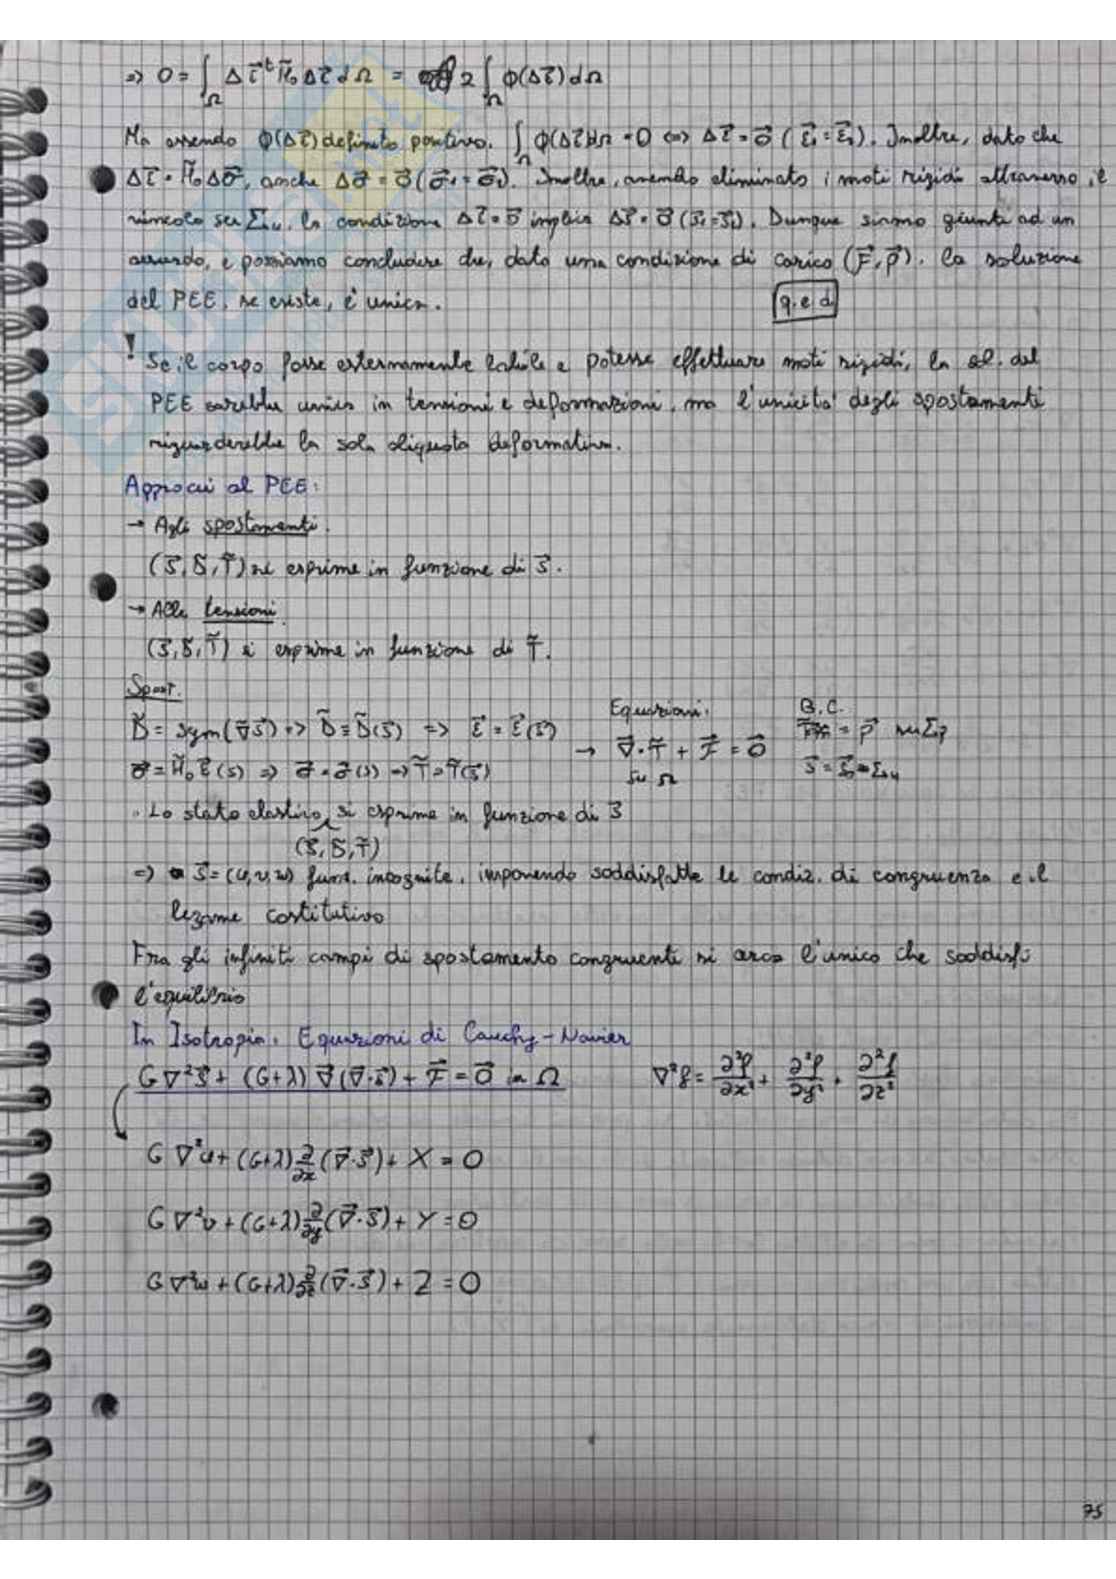 => 0 = ∫_Ω Δε⃗ᵗ H̃₀ Δε⃗ dΩ = 2 ∫_Ω φ(Δε⃗) dΩ
Ma essendo φ(Δε⃗) definito positivo, ∫_Ω φ(Δε⃗)dΩ = 0 <=> Δε⃗ = 0⃗ (ε⃗₁ = ε⃗₂). Inoltre, dato che
Δε⃗ = H̃₀Δσ⃗, anche Δσ⃗ = 0⃗ (σ⃗₁ = σ⃗₂). Inoltre, avendo eliminato i moti rigidi attraverso il
vincolo su Σu, la condizione Δε⃗ = 0⃗ implica Δs⃗ = 0⃗ (s⃗₁ = s⃗₂). Dunque siamo giunti ad un
assurdo, e possiamo concludere che, dato una condizione di carico (F⃗, p⃗), la soluzione
del PEE, se esiste, è unica. q.e.d.
! Se il corpo fosse esternamente labile e potesse effettuare moti rigidi, la sol. del
PEE sarebbe unica in tensioni e deformazioni, ma l'unicita' degli spostamenti
riguarderebbe la sola aliquota deformativa.
Approcci al PEE:
→ Agli spostamenti.
(s⃗, D̃, T̃) si esprime in funzione di s⃗.
→ Alle tensioni.
(s⃗, D̃, T̃) si esprime in funzione di T̃.
Spost. Equazioni: B.C.
D̃ = sym(∇⃗s⃗) => D̃ ≡ D̃(s⃗) => ε⃗ = ε⃗(s⃗) → ∇⃗·T̃ + F⃗ = 0⃗ = p⃗ su Σp
σ⃗ = H̃₀ε⃗(s) => σ⃗ = σ⃗(s) => T̃ = T̃(s⃗) su Ω s⃗ = s⃗₀ Σu
. Lo stato elastico si esprime in funzione di s⃗
(s⃗, D̃, T̃)
=> s⃗ = (u,v,w) funz. incognite, imponendo soddisfatte le condiz. di congruenza e il
legame costitutivo
Fra gli infiniti campi di spostamento congruenti si cerca l'unico che soddisfi
l'equilibrio
In Isotropia: Equazioni di Cauchy-Navier
G∇²s⃗ + (G+λ) ∇⃗(∇⃗·s⃗) + F⃗ = 0⃗ in Ω ∇²f = ∂²f/∂x² + ∂²f/∂y² + ∂²f/∂z²
G∇²u + (G+λ) ∂/∂x (∇⃗·s⃗) + X = 0
G∇²v + (G+λ) ∂/∂y (∇⃗·s⃗) + Y = 0
G∇²w + (G+λ) ∂/∂z (∇⃗·s⃗) + Z = 0
75